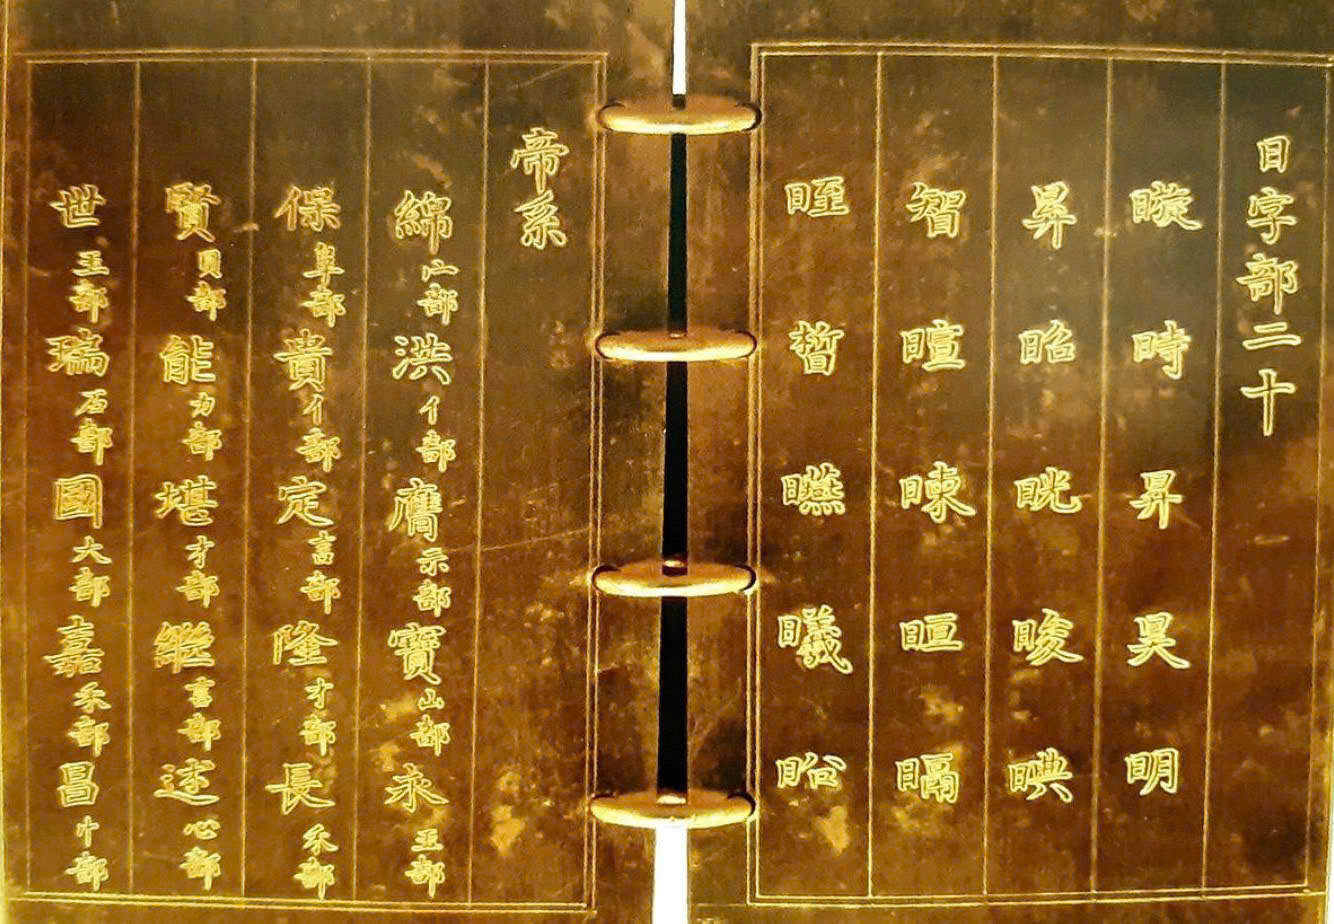 日字部二十
暶時昇昊明
昪昭晄晙晪
智暄暕晅㬏
晊晢曣曦
帝系
綿宀部洪亻部膺示部寶山部永玉部
保阜部貴亻部定言部隆扌部長禾部
賢貝部能力部堪才部繼言部述心部
世玉部瑞石部國大部嘉禾部昌忄部